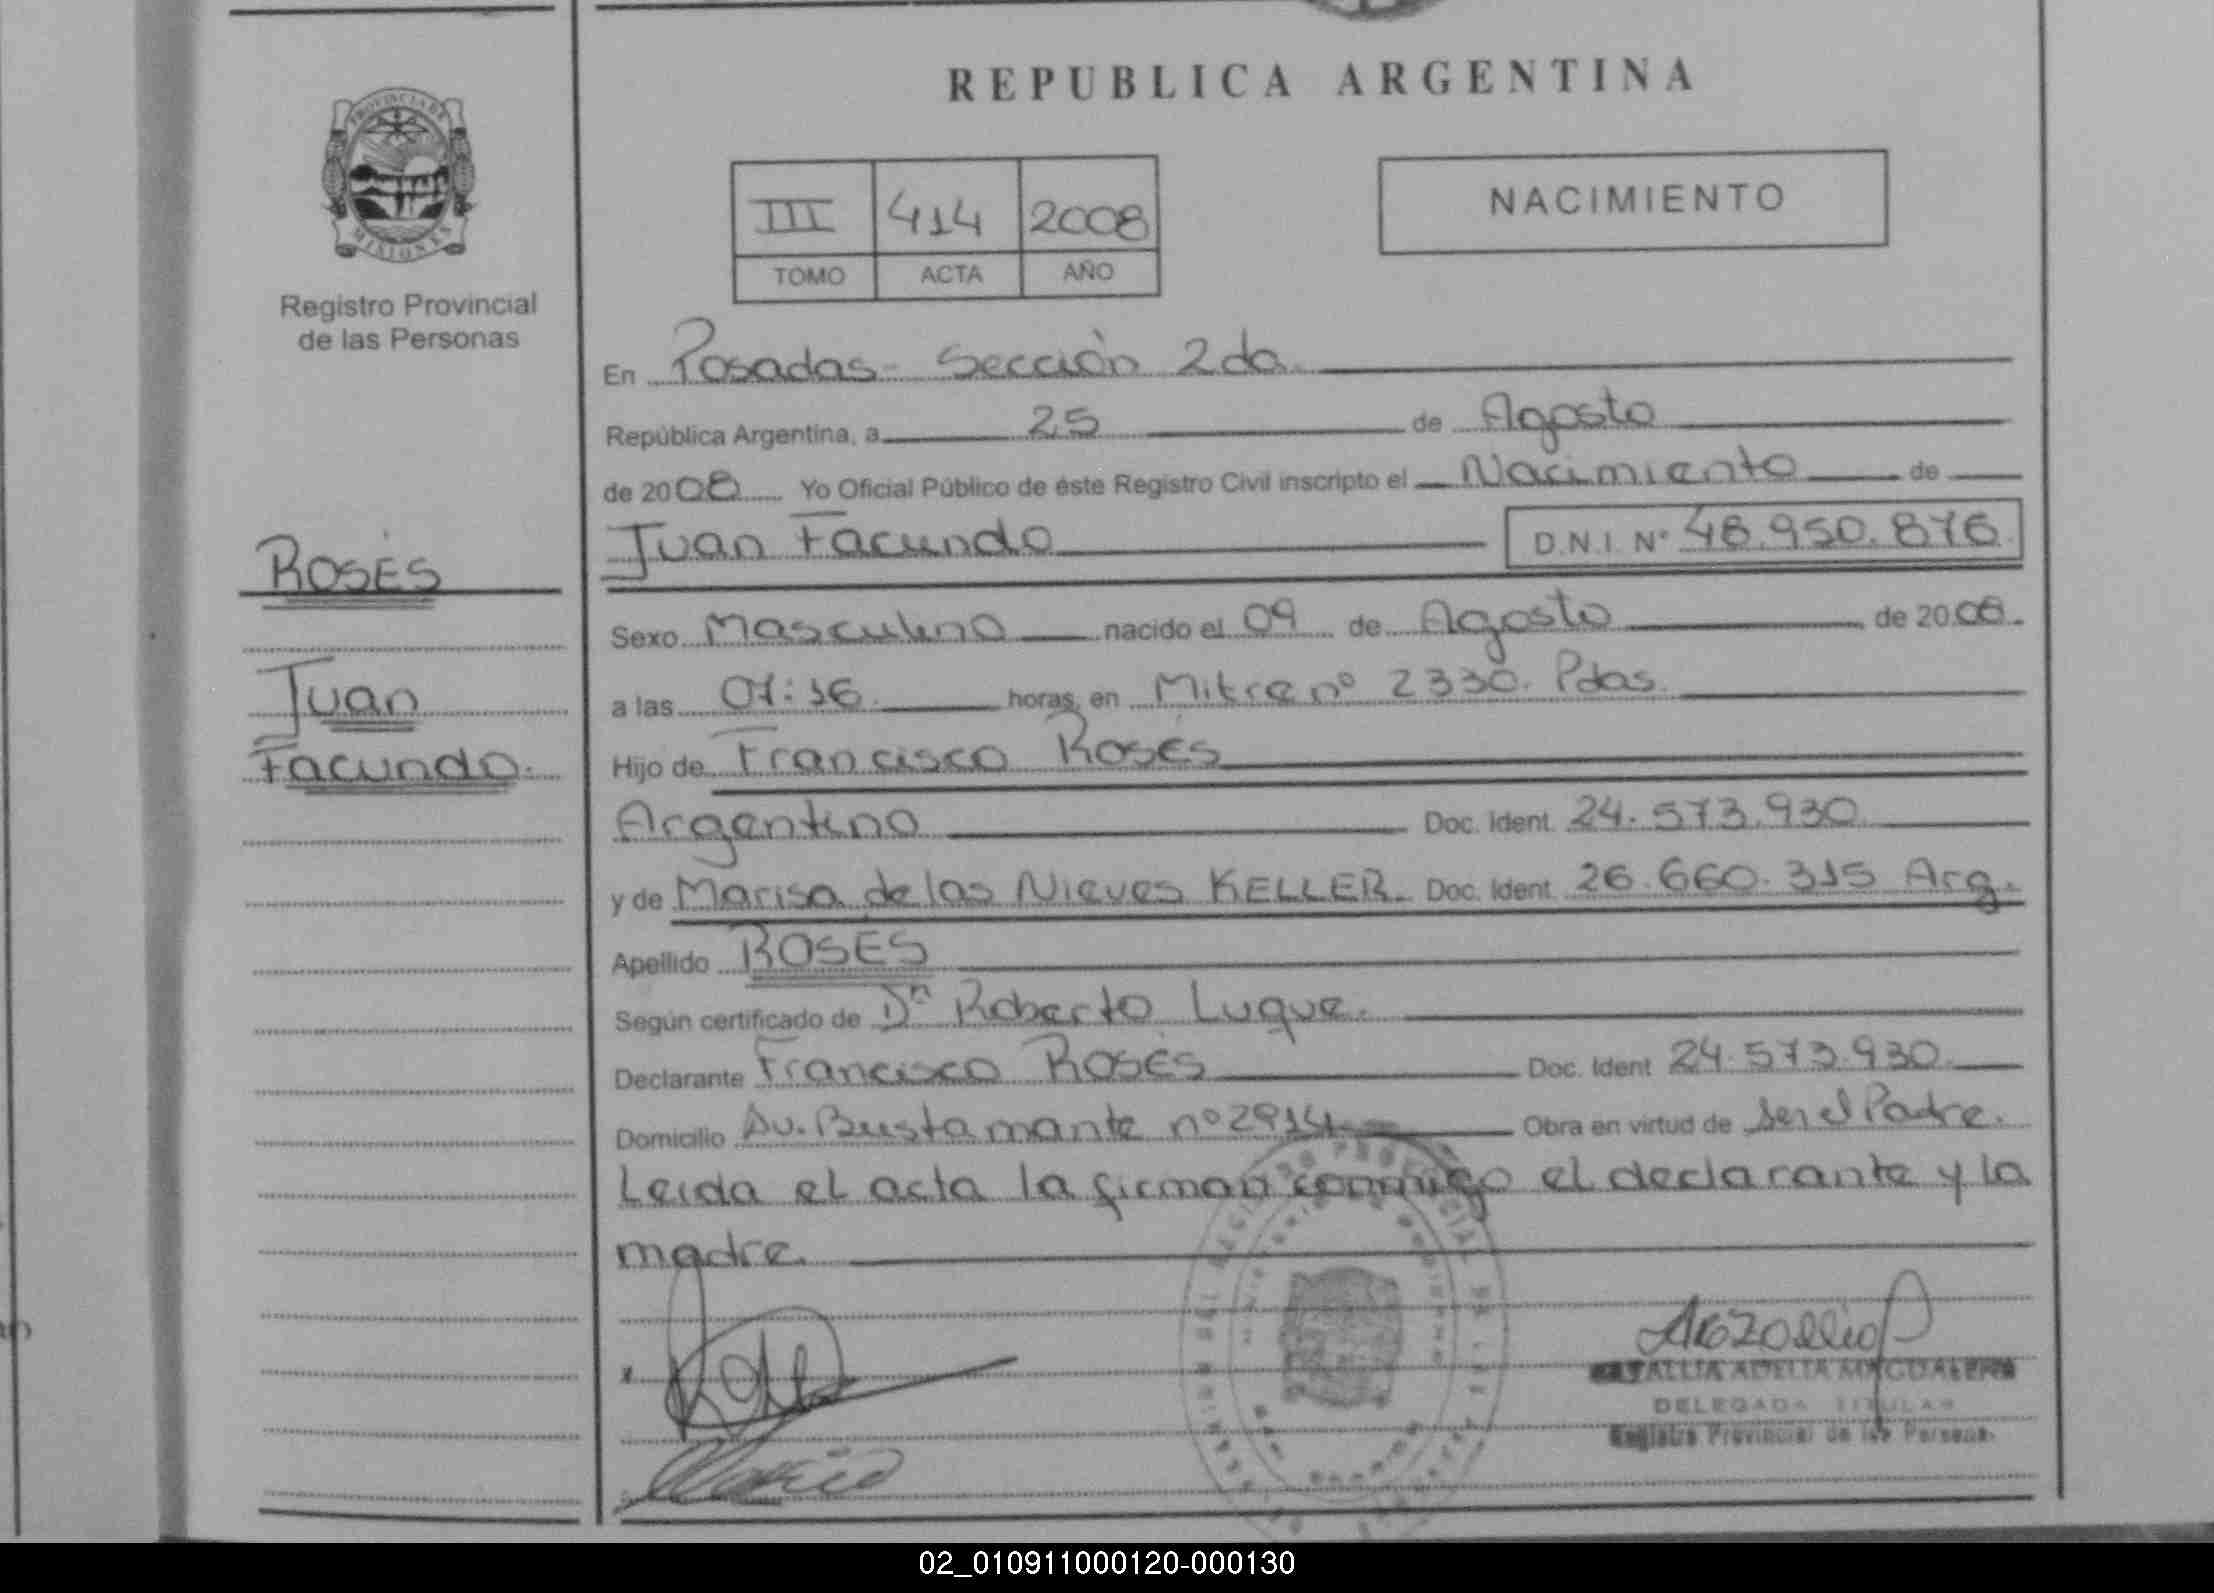 REPUBLICA ARGENTINA
PROVINCIA DE
MISIONES
Registro Provincial
de las Personas
III 414 2008
TOMO ACTA AÑO
NACIMIENTO
En Posadas - Sección 2da.
República Argentina, a 25 de Agosto
de 2008 Yo Oficial Público de éste Registro Civil inscripto el Nacimiento de
Juan Facundo D.N.I. Nº 48.950.876
ROSÉS
Juan
Facundo.
Sexo Masculino nacido el 09 de Agosto de 2008.
a las 07:16 horas, en Mitre nº 2330. Pdas.
Hijo de Francisco Rosés
Argentino Doc. Ident. 24.573.930
y de Marisa de las Nieves KELLER. Doc. Ident. 26.660.315 Arg.
Apellido ROSÉS
Según certificado de Dn Roberto Luque.
Declarante Francisco Rosés Doc. Ident. 24.573.930.
Domicilio Av. Bustamante nº 2914 Obra en virtud de Ser el Padre.
Leida el acta la firman conmigo el declarante y la
madre.
ADELIA MAGDALENA
DELEGADA TITULAR
Registro Provincial de las Personas
02_010911000120-000130